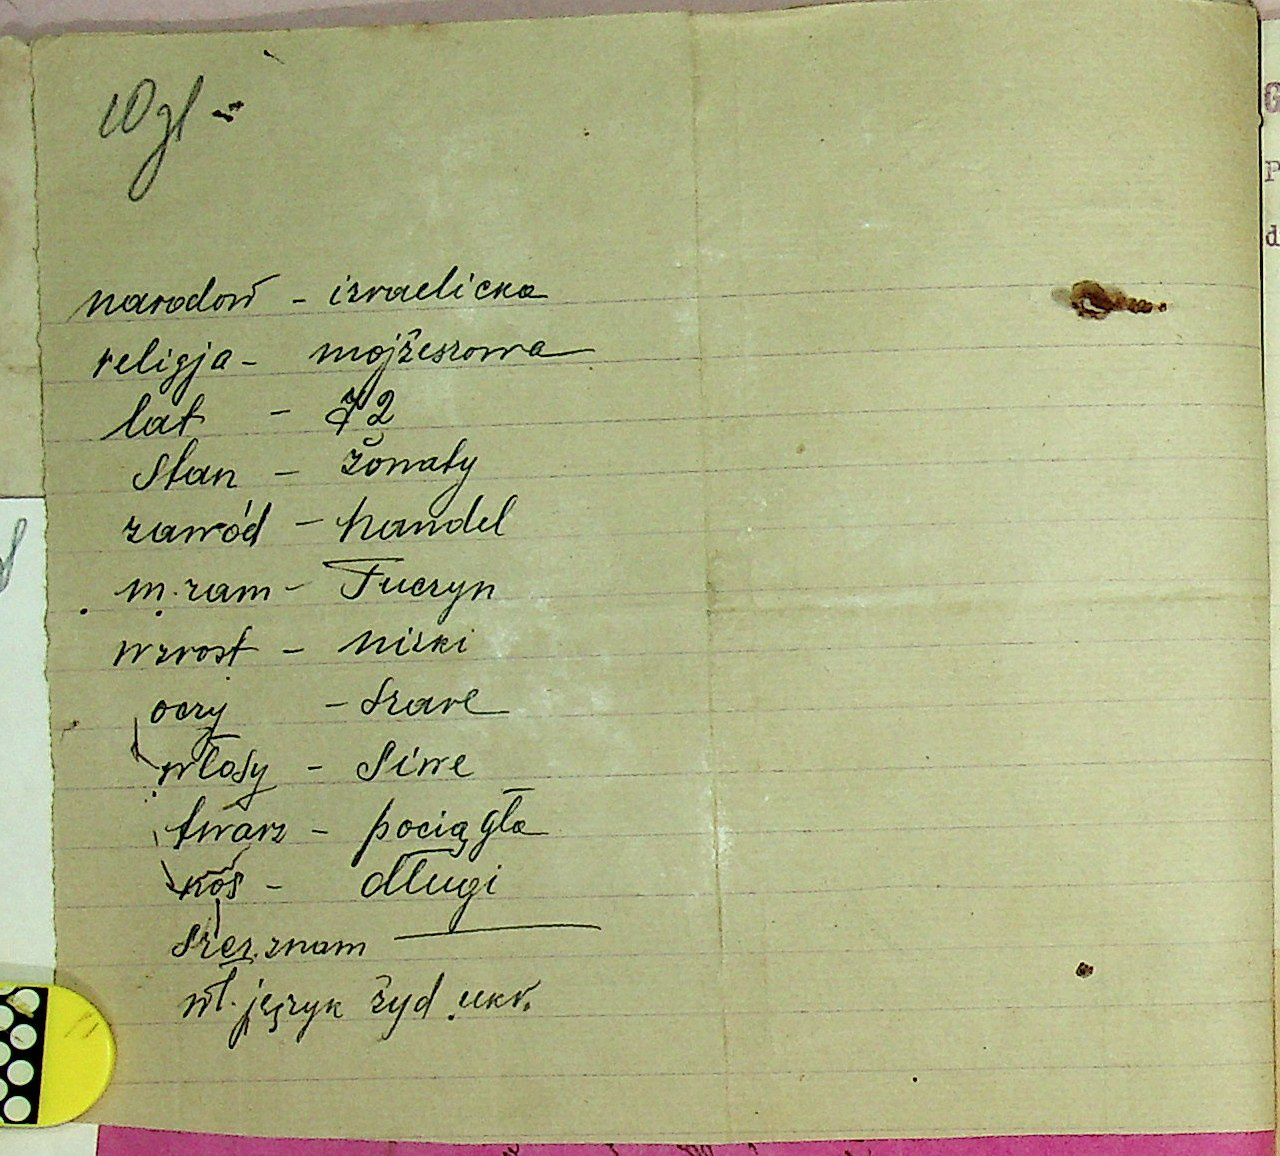 narodow - izraelicka
religja - mojżeszowa
lat - 72
stan - żonaty
zawód - handel
m. zam - Tuczyn
wzrost - nizki
oczy - szare
włosy - siwe
twarz - pociągła
nos - długi
szcz. znam
wł. język żyd. ukr.